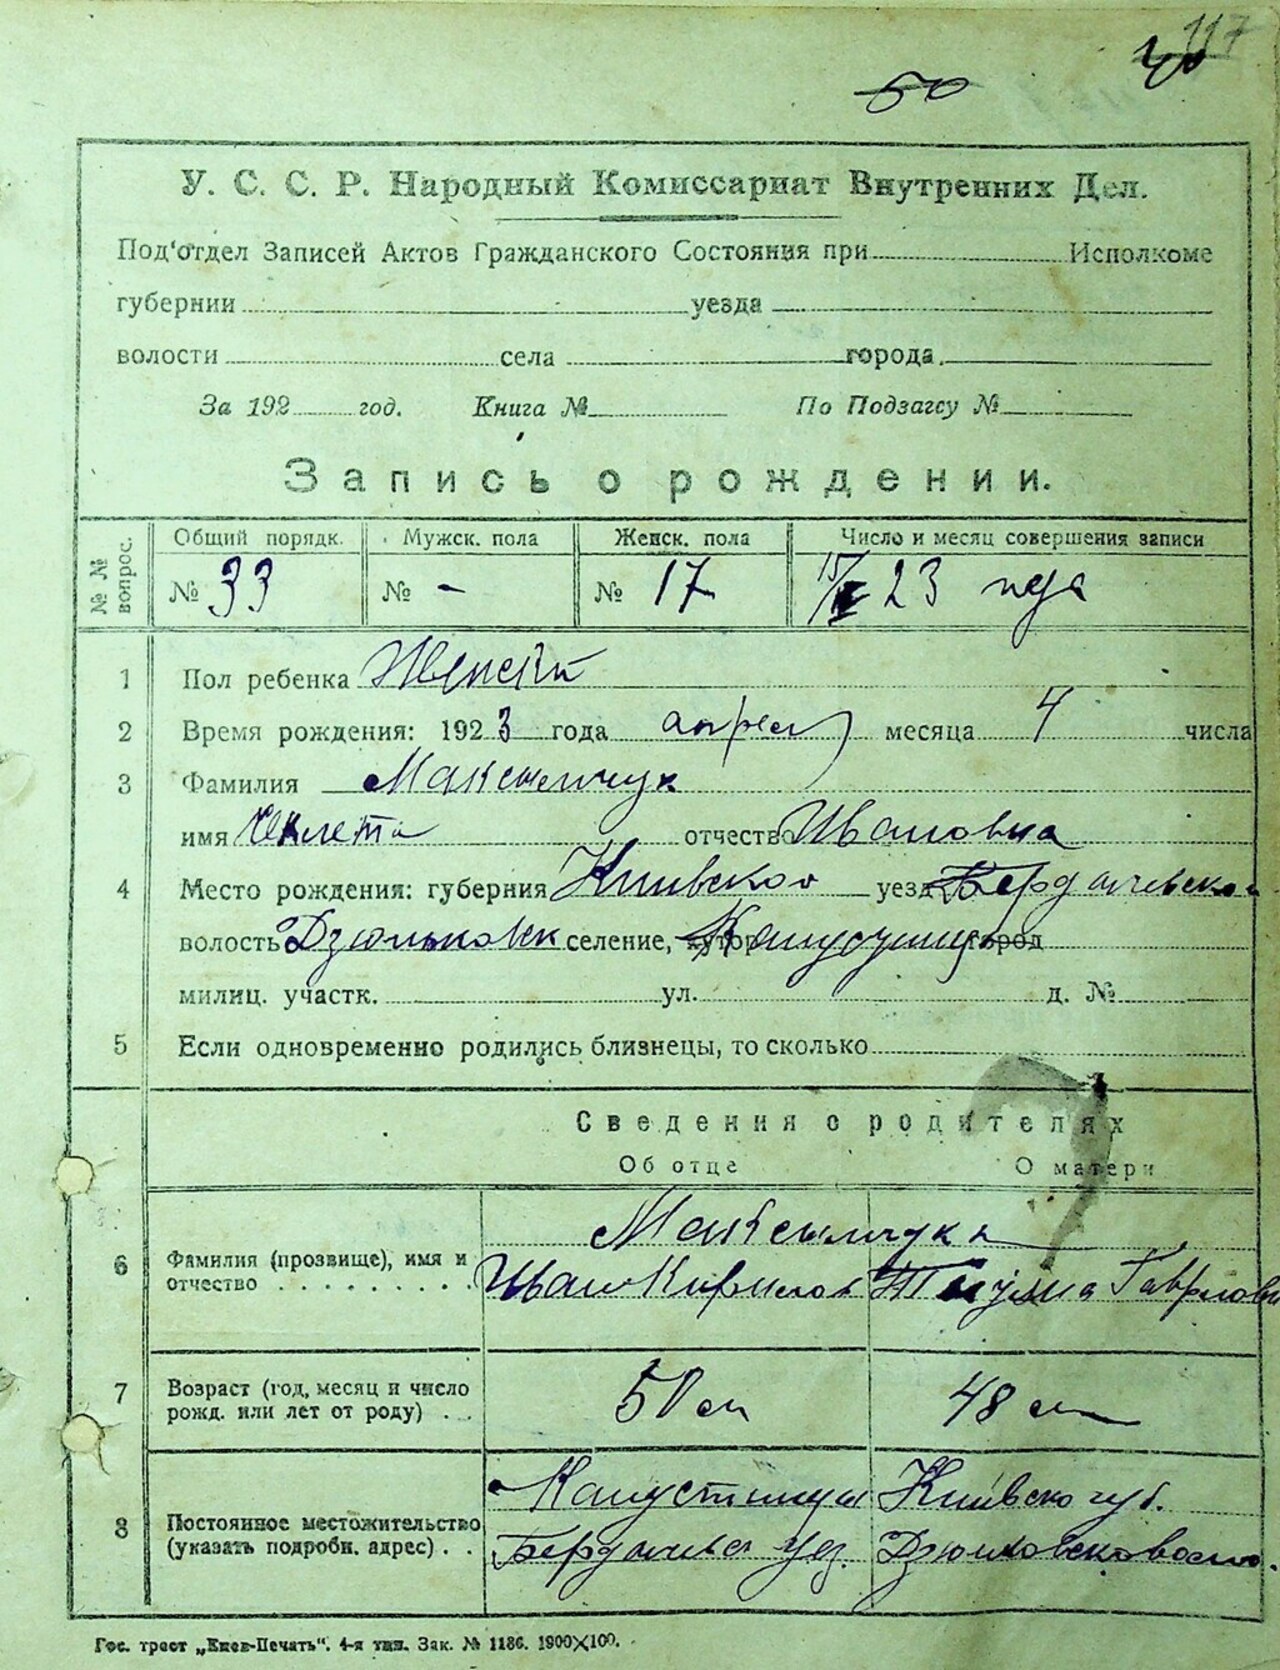 117
40
50
У. С. С. Р. Народный Комиссариат Внутренних Дел.
Под‘отдел Записей Актов Гражданского Состояния при Исполкоме
губернии уезда
волости села города
За 192 год. Книга № По Подзагсу №
Запись о рождении.
№№ вопрос. Общий порядк. Мужск. пола Женск. пола Число и месяц совершения записи
№ 33 № - № 17 15/ 23
1 Пол ребенка Женски
2 Время рождения: 1923 года апреля месяца 4 числа
3 Фамилия Максимчук
имя отчество Ивановна
4 Место рождения: губерния Киивской уезд Бердичевской
волость Дзюньковск селение, хутор город
милиц. участк. ул. д. №
5 Если одновременно родились близнецы, то сколько
Сведения о родителях
Об отце О матери
Максимчуки
6 Фамилия (прозвище), имя и отчество Иван Кирилов
7 Возраст (год, месяц и число рожд. или лет от роду) 50 48
8 Постоянное местожительство (указать подробн. адрес)
Киивско губ.
Гос. трест „Киев-Печать“. 4-я тип. Зак. № 1186. 1900×100.